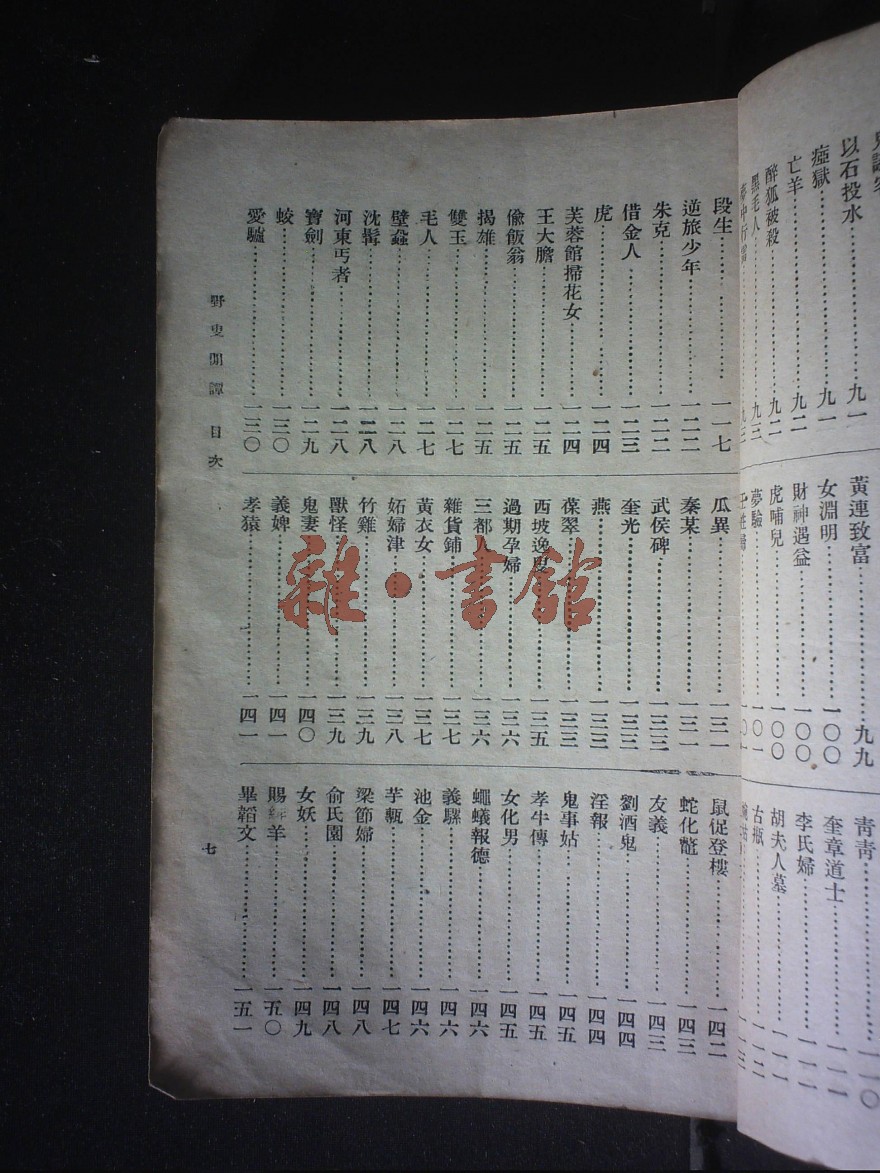 以石投水……九一
瘞獄……九一
亡羊……九二
醉狐被殺……九二
黑毛人……九三
黃連致富……九九
女淵明……一〇〇
財神遇益……一〇〇
虎哺兒……一〇〇
夢驗……一〇一
青青……一一〇
奎章道士……一一一
李氏婦……一一一
胡夫人墓……一一一
古瓶……一一二
段生……一一七
逆旅少年……一二二
朱克……一二二
借金人……一二三
虎……一二四
芙蓉館掃花女……一二四
王大膽……一二五
偸飯翁……一二五
揭雄……一二五
雙玉……一二七
毛人……一二七
壁蝨……一二八
沈髯……一二八
河東丐者……一二八
寶劍……一二九
蛟……一三〇
愛驢……一三〇
瓜異……一三一
秦某……一三一
武侯碑……一三三
奎光……一三三
燕……一三三
葆翠……一三三
西坡逸叟……一三五
過期孕婦……一三六
三都人……一三六
雜貨鋪……一三七
黃衣女……一三七
妬婦津……一三八
竹雞……一三九
獸怪……一三九
鬼妻……一四〇
義婢……一四一
孝猿……一四一
鼠促登樓……一四二
蛇化鼈……一四三
友義……一四三
劉酒鬼……一四四
淫報……一四四
鬼事姑……一四五
孝牛傳……一四五
女化男……一四五
蠅蟻報德……一四六
義騾……一四六
池金……一四六
芋甎……一四七
梁節婦……一四八
俞氏園……一四八
女妖……一四九
賜羊……一五〇
畢韜文……一五一
野叟閒譚 目次
七
雜·書館